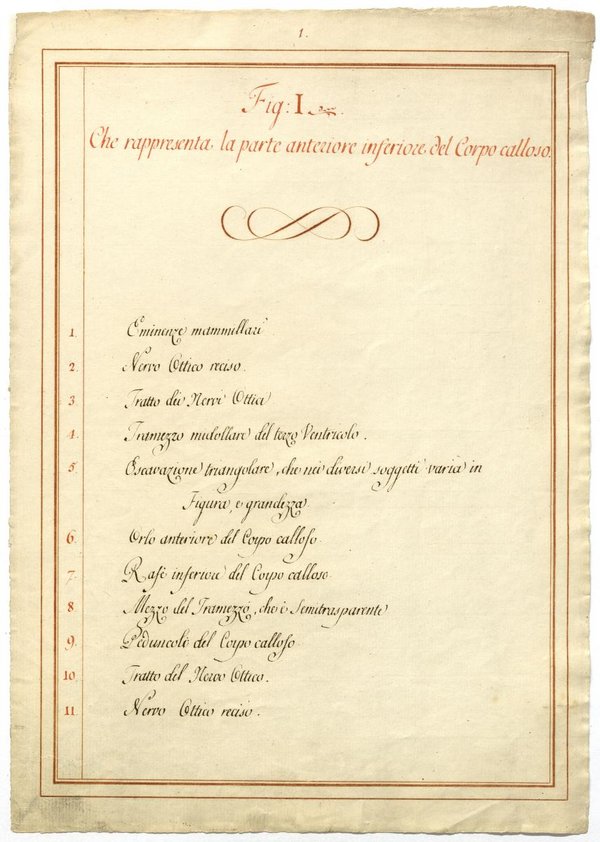 1.
Fig: I.
Che rappresenta, la parte anteriore inferiore, del Corpo calloso.
1. Eminenze mammillari
2. Nervo Ottico reciso.
3. Tratto dei Nervi Ottici
4. Tramezzo midollare del terzo Ventricolo.
5. Escavazione triangolare, che nei diversi soggetti varia in
Figura, e grandezza
6. Orlo anteriore del Corpo calloso.
7. Rafe inferiore del Corpo calloso.
8. Mezzo del Tramezzo, che è Semitrasparente
9. Peduncoli del Corpo calloso.
10. Tratto del Nervo Ottico.
11. Nervo Ottico reciso.